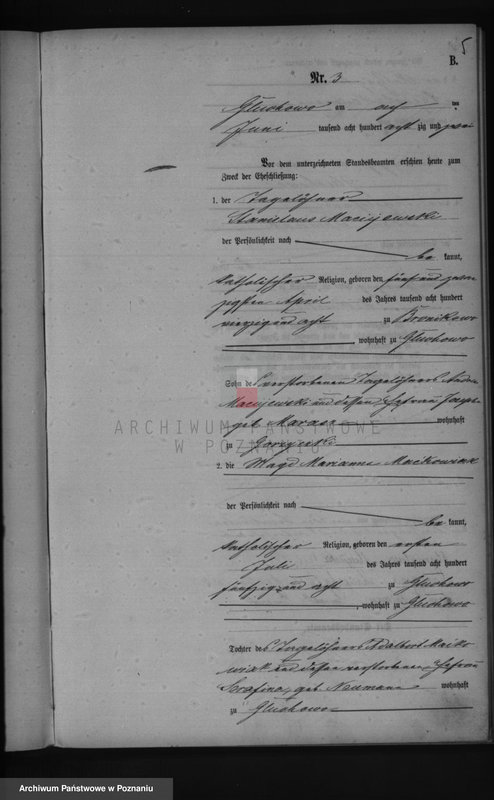 5
B.
Nr. 3
Gluchowo am acht ten
Juni tausend acht hundert acht zig und zwei
Vor dem unterzeichneten Standesbeamten erschien heute zum
Zweck der Eheschließung:
1. der Tagelöhner
Stanislaus Maciejewski
der Persönlichkeit nach
be kannt,
katholischer Religion, geboren den fünf und zwan
zigsten April des Jahres tausend acht hundert
vierzig und acht zu Bronikowo
, wohnhaft zu Gluchowo
Sohn des verstorbenen Tagelöhners
Maciejewski und dessen Ehefrau
geb wohnhaft
zu
2. die Magd Marianna Maćkowiak
der Persönlichkeit nach
be kannt,
katholischer Religion, geboren den ersten
Juli des Jahres tausend acht hundert
fünfzig und acht zu Gluchowo
, wohnhaft zu Gluchowo
Tochter des Tagelöhners Adalbert Maćko
wiak und dessen verstorbenen Ehefrau
Serafina, geb Neumann wohnhaft
zu Gluchowo
ARCHIWUM PAŃSTWOWE
W POZNANIU
Archiwum Państwowe w Poznaniu